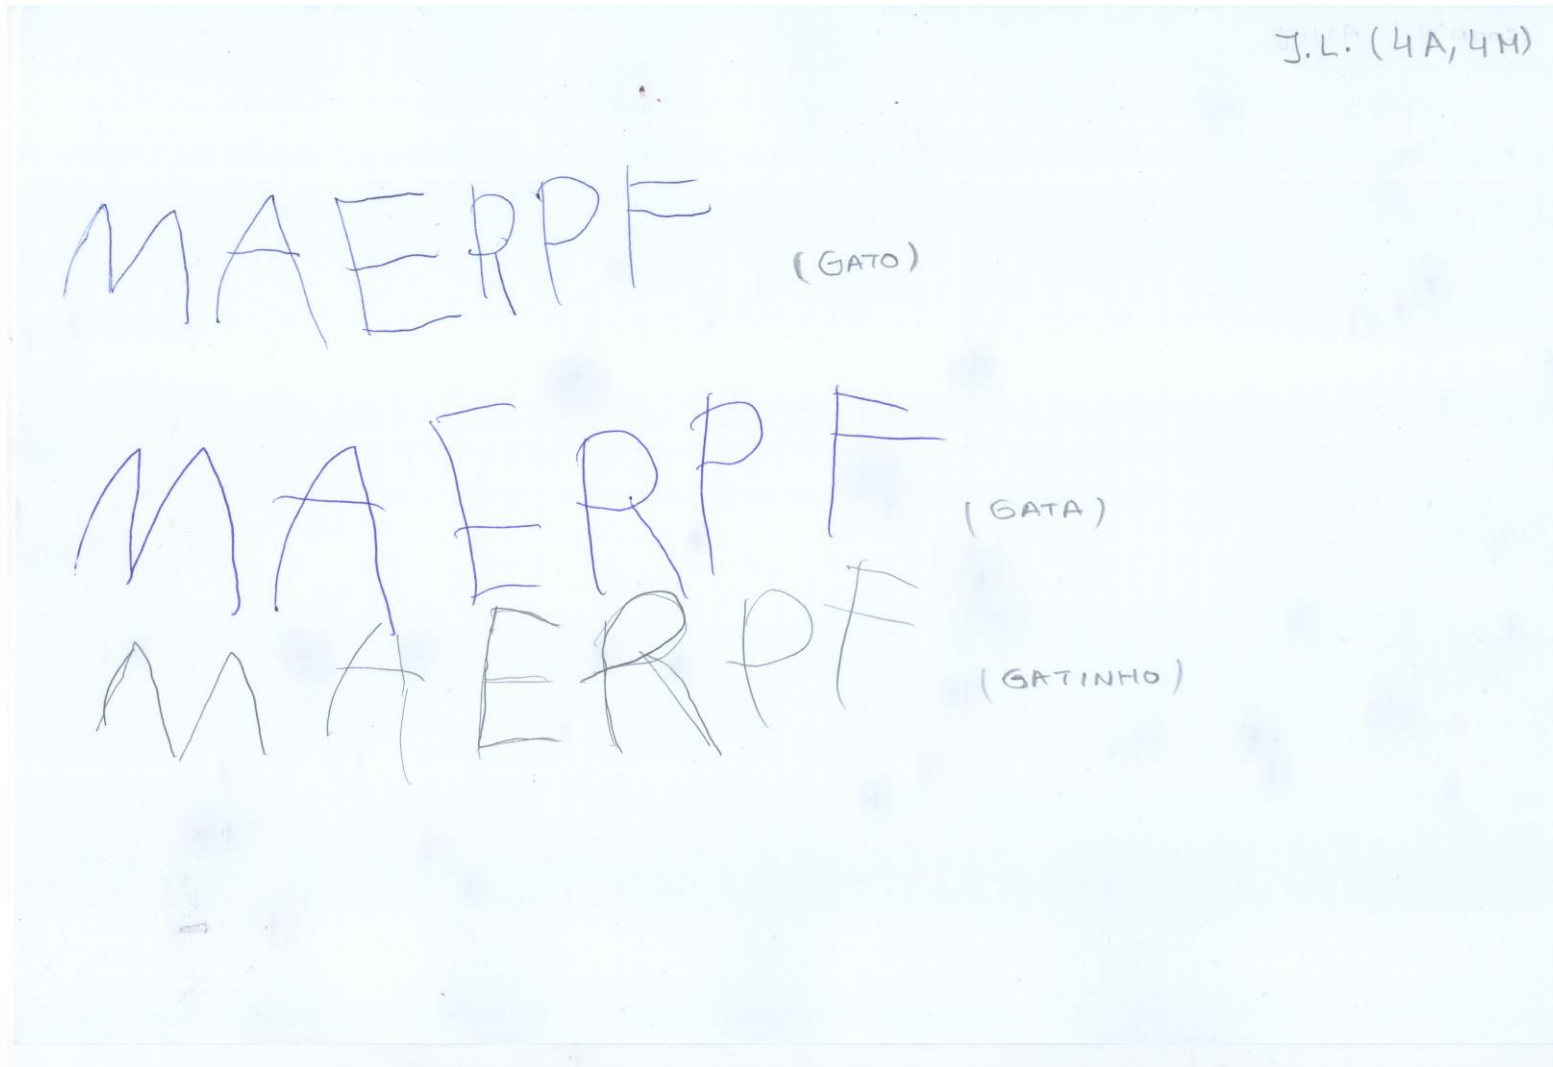 J.L. (4A, 4M)
MAERPF (GATO)
MAERPF (GATA)
MAERPF (GATINHO)